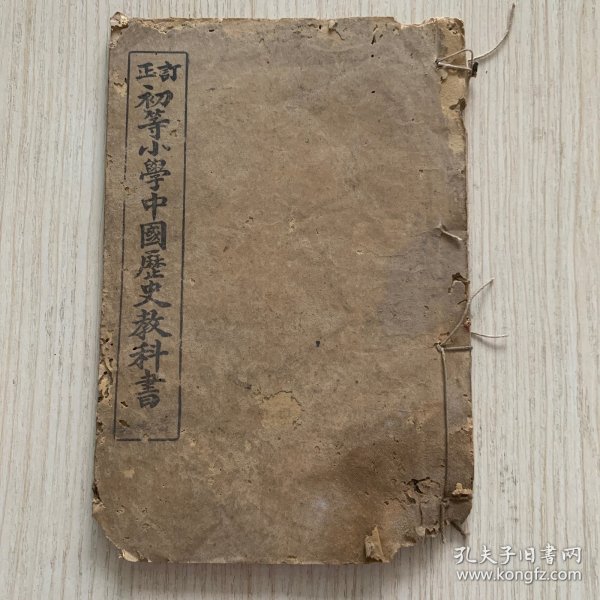 訂正
初等小學中國歷史教科書
孔夫子旧書网
www.kongfz.com